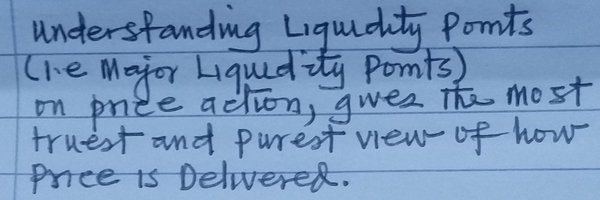 Understanding Liquidity Points
(i.e Major Liquidity Points)
on price action, gives the most
truest and purest view of how
Price is Delivered.